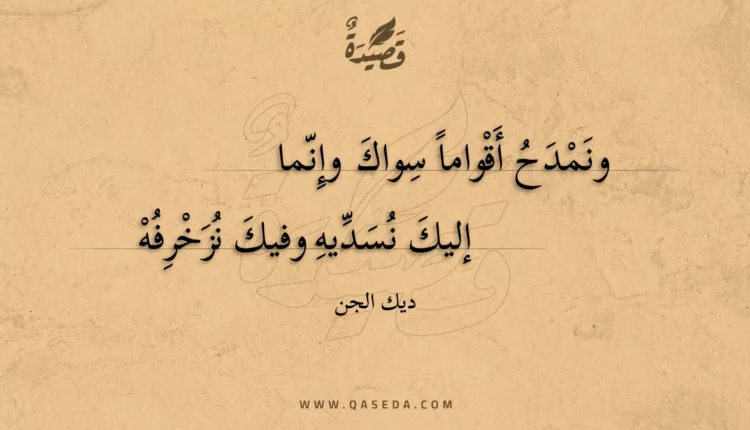 قَصِيْدَةٌ
ونَمْدَحُ أَقْواماً سِواكَ وإِنّما
إليكَ نُسَدِّيهِ وفيكَ نُزَخْرِفُهْ
ديك الجن
WWW.QASEDA.COM